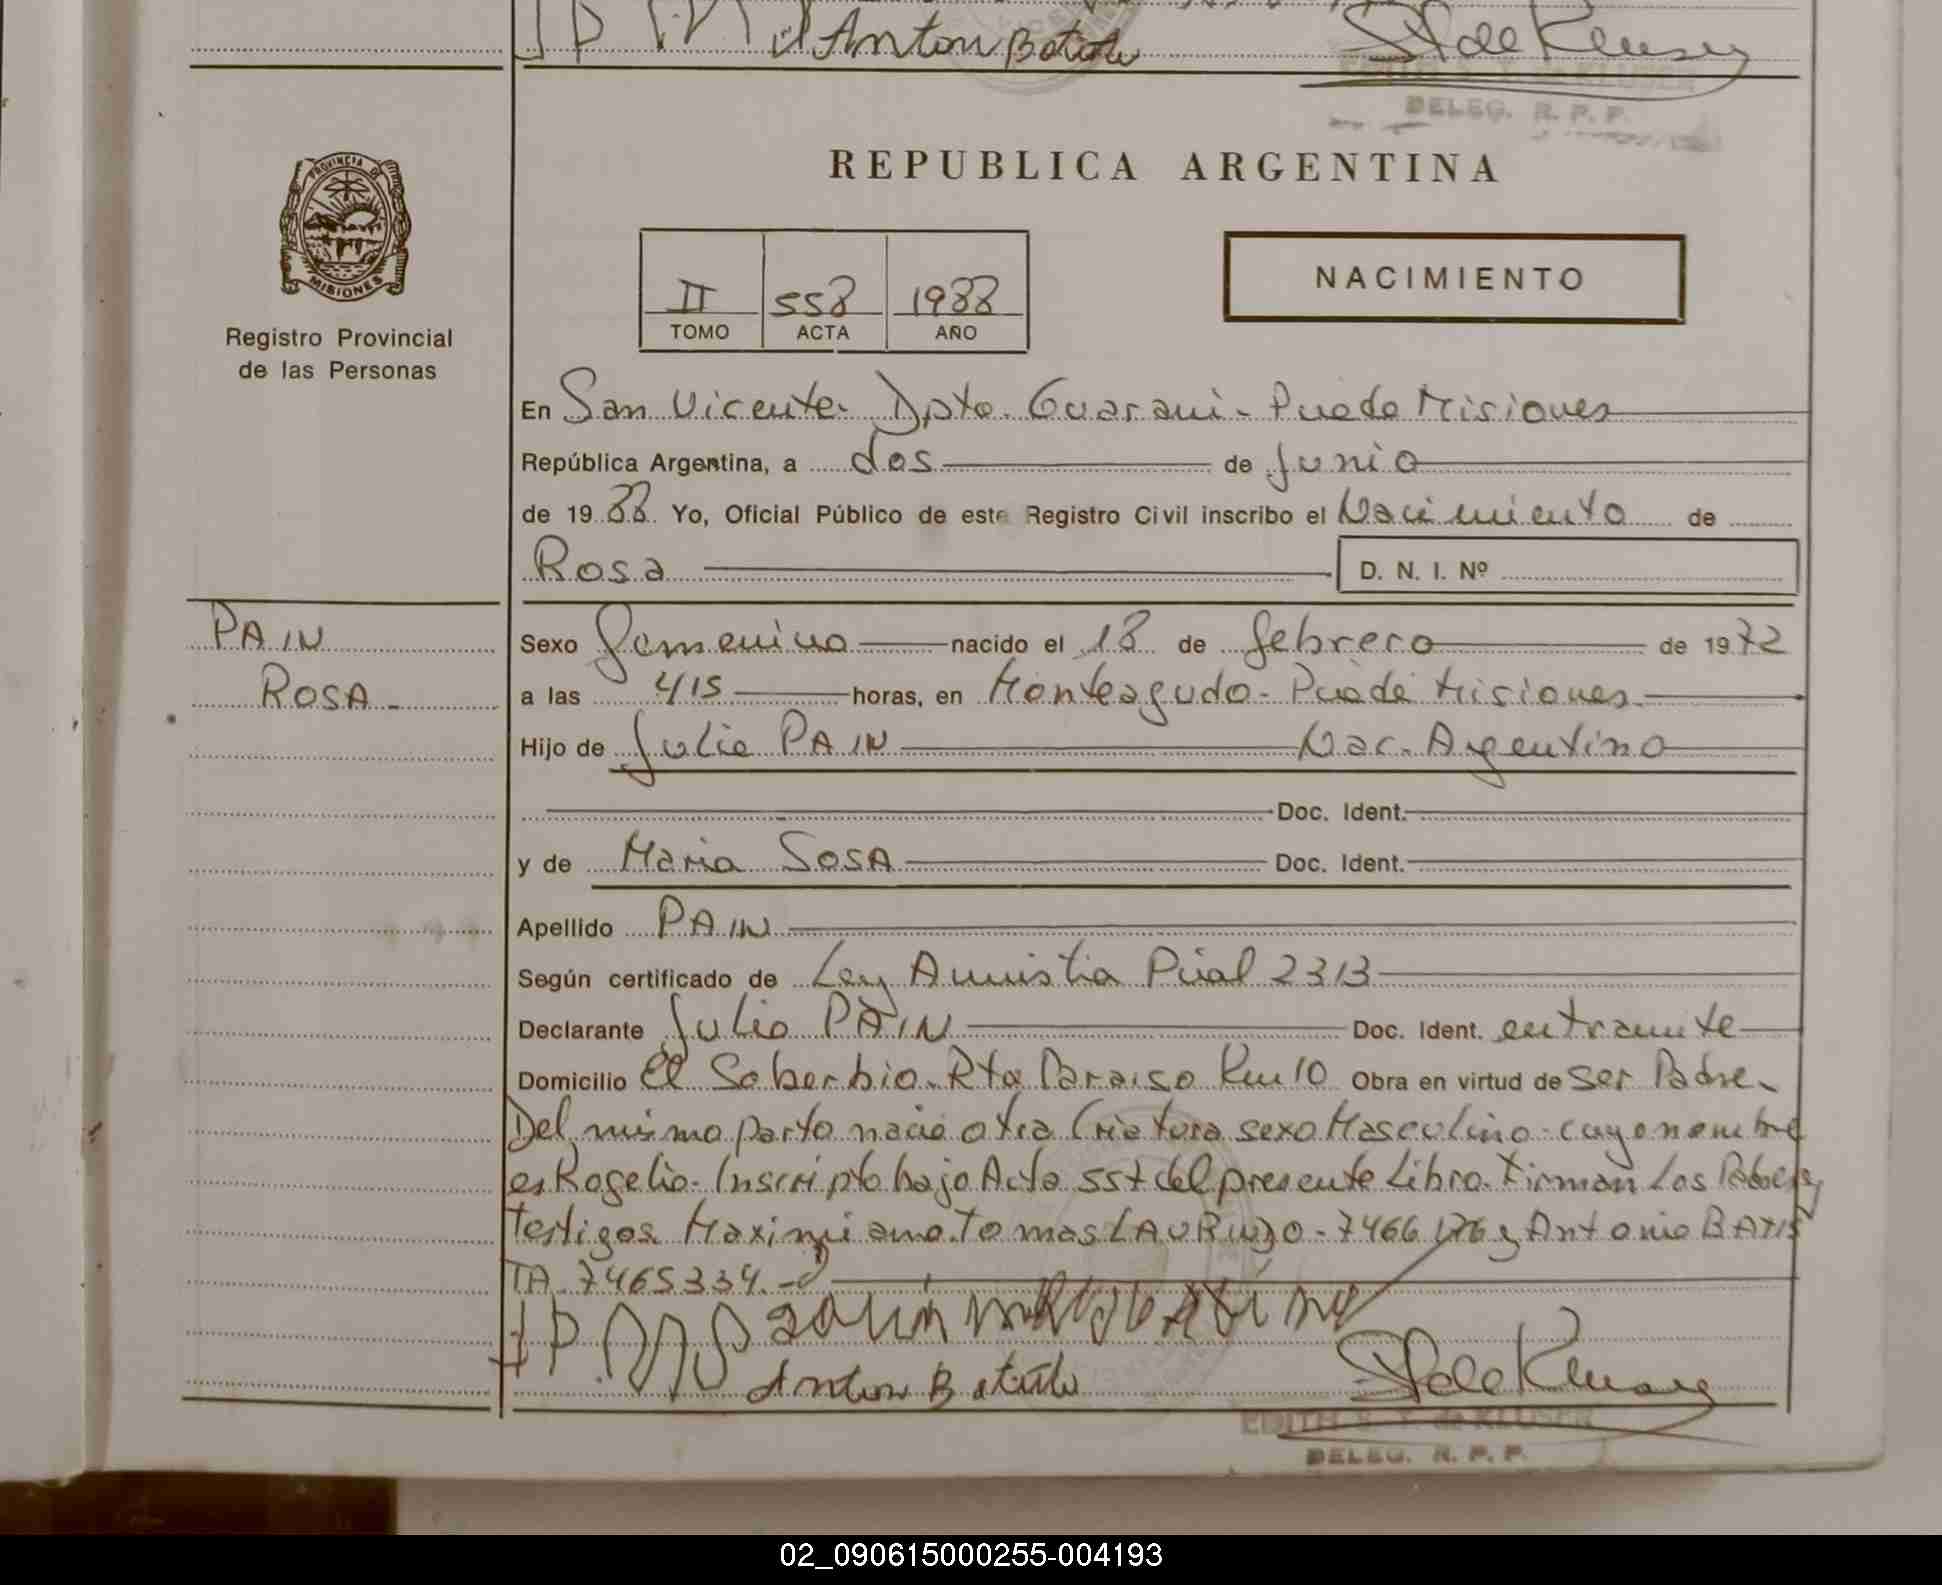 Anton Batista
EDITH S. Y. de KLUSER
DELEG. R. P. P.
PROVINCIA DE
MISIONES
Registro Provincial
de las Personas
REPUBLICA ARGENTINA
II 558 1988
TOMO ACTA AÑO
NACIMIENTO
En San Vicente - Dpto. Guarani - Pcia de Misiones
República Argentina, a dos de Junio
de 1988 Yo, Oficial Público de este Registro Civil inscribo el Nacimiento de
Rosa D. N. I. Nº
PAIN
ROSA -
Sexo Femenino nacido el 18 de febrero de 1972
a las 415 horas, en Monteagudo - Pcia de Misiones
Hijo de Julio PAIN Nac. Argentino
Doc. Ident.
y de Maria SOSA Doc. Ident.
Apellido PAIN
Según certificado de Ley Amnistia Pcial 2313
Declarante Julio PAIN Doc. Ident. en tramite
Domicilio El Soberbio - Rta Paraiso Km 10 Obra en virtud de ser Padre -
Del mismo parto nacio otra Criatura sexo Masculino - cuyo nombre
es Rogelio - Inscripto bajo Acta 557 del presente Libro. Firman Los Padres y
Testigos Maximiano Tomas - 7466176 y Antonio BATIS
TA - 7465334. -
Anton Batista
EDITH S. Y. de KLUSER
DELEG. R. P. P.
02_090615000255-004193